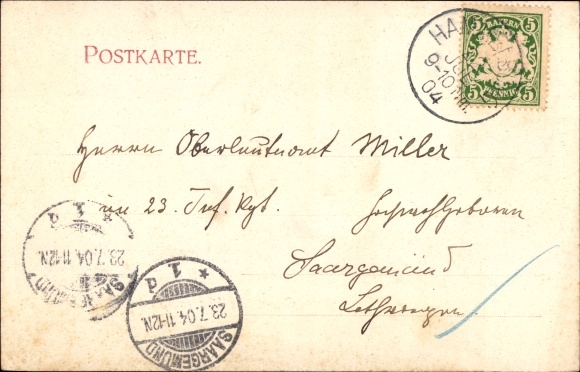 POSTKARTE.
5 BAYERN 5
5 PFENNIG 5
HA
JUL
9-10
04
Herrn Oberleutnant Miller
im 23. Inf. Rgt. Hochwohlgeboren
Saargemünd
Lothringen
* 1 d
23.7.04.11-12N.
SAARGEMÜND
* 1 d
23.7.04.11-12N.
SAARGEMÜND